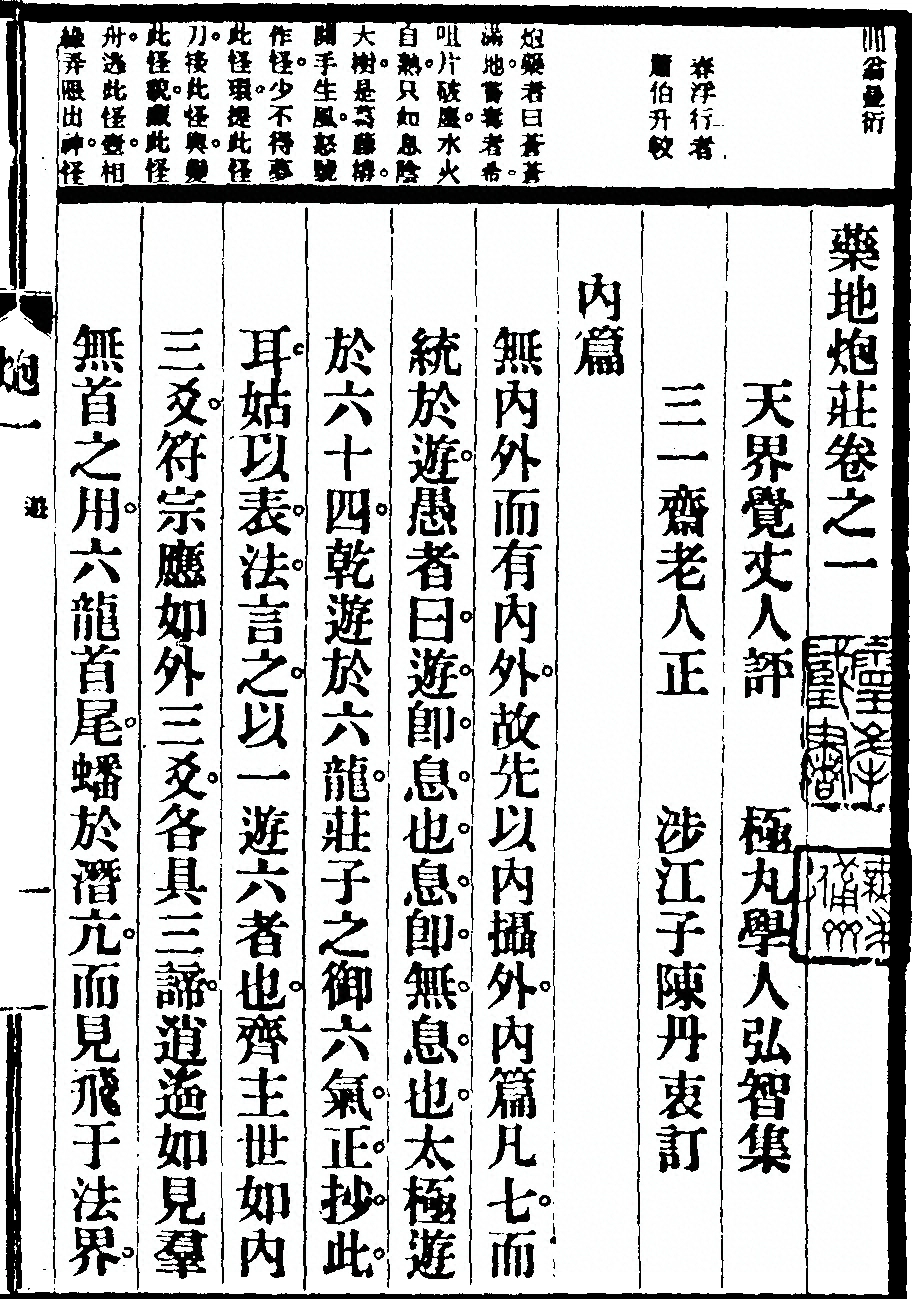 藥地炮莊卷之一
天界覺丈人評　極丸學人弘智集
三一齋老人正　涉江子陳丹衷訂
春浮行者
蕭伯升較
內篇
無內外而有內外。故先以內攝外。內篇凡七。而
統於遊。愚者曰。遊。卽息也。息。卽無息也。太極遊
於六十四。乾遊於六龍。莊子之御六氣。正抄此。
耳。姑以表。法。言之。以一遊六者也。齊主世如內
三爻。符宗應如外三爻。各具三諦。逍遙如見羣
無首之用。六龍首尾。蟠於潛亢。而見飛于法界。
炮藥者曰蒼蒼
滿地。藥毒者希。
咀片破塵。水火
自熟。只如息陰
大樹是葛藤樁。
開手生風。怒號
作怪。少不得夢
此怪。環提此怪
刀。接此怪。與變
此怪。貌。此怪
舟。逃此怪。壺相
弄。愚出神。怪
炮一
遊
一